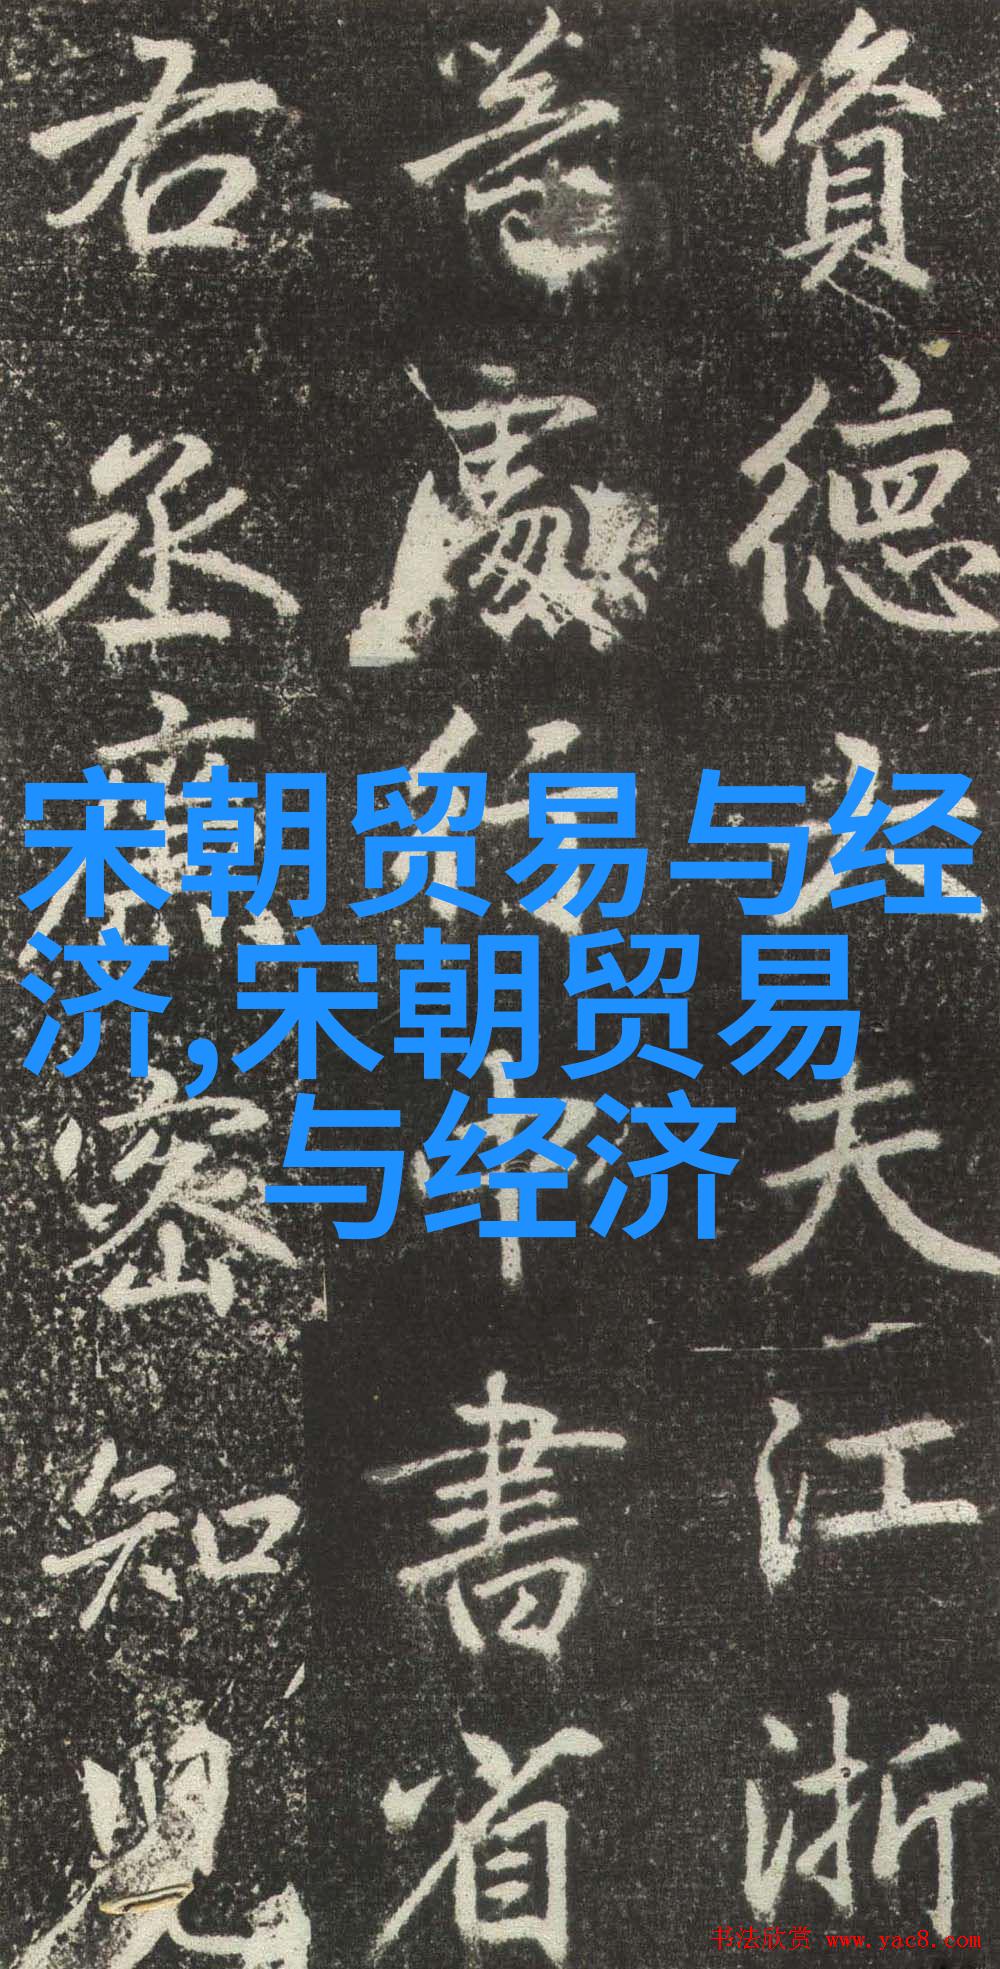 資德大夫江浙
等處行中書省
右丞密知兒
宋朝贸易与经
济,宋朝贸易
与经济
书法欣赏 www.yac8.com